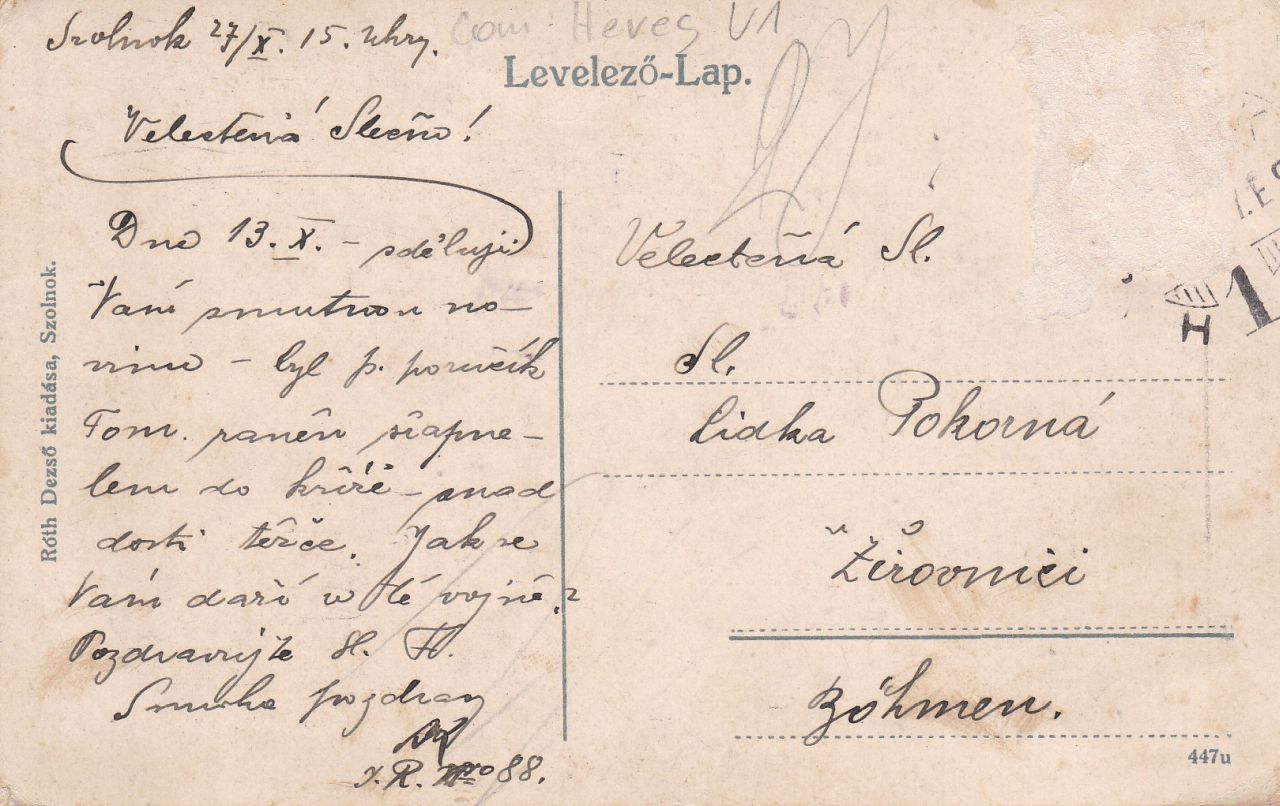 Szolnok 27/X. 15. Uhry.
Com Heves V1
Levelező-Lap.
Velectěná Slečno!
Dne 13. X. – sděluji
Vám smutnou no-
vinu – byl p. poručík
Tom. raněn šrapne-
lem do kříže – snad
dosti těžce. Jak se
Vám daří v té vojně?
Pozdravujte sl. H.
Smutno pozdrav
I.R. No 88.
Róth Dezső kiadása, Szolnok.
Velectěná Sl.
Sl.
Lidka Pokorná
Žirovnici
Böhmen.
447u